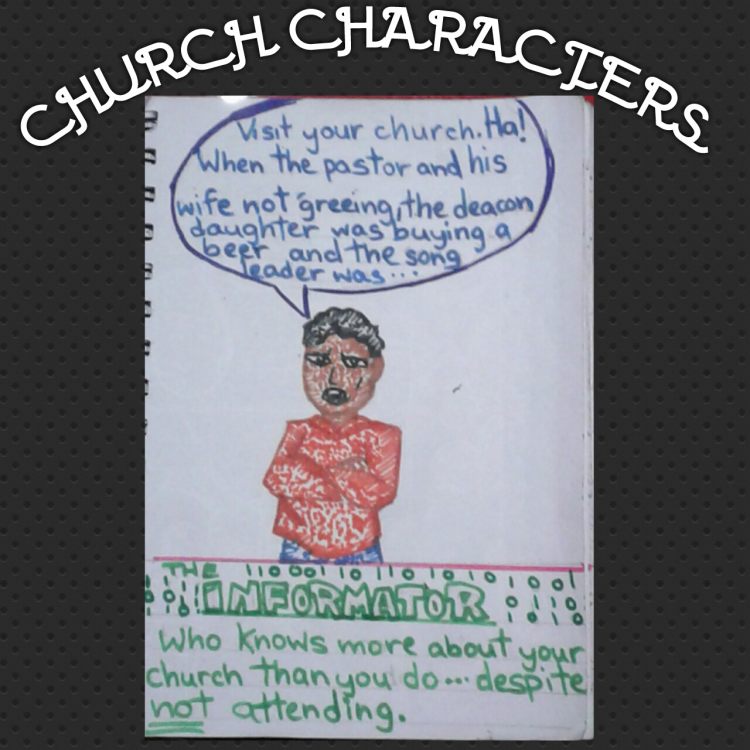 CHURCH CHARACTERS
Visit your church. Ha!
When the pastor and his
wife not 'greeing, the deacon
daughter was buying a
beer and the song
leader was...
THE 110001 10 110 10 10 1001
0101 INFORMATOR
Who knows more about your
church than you do... despite
not attending.